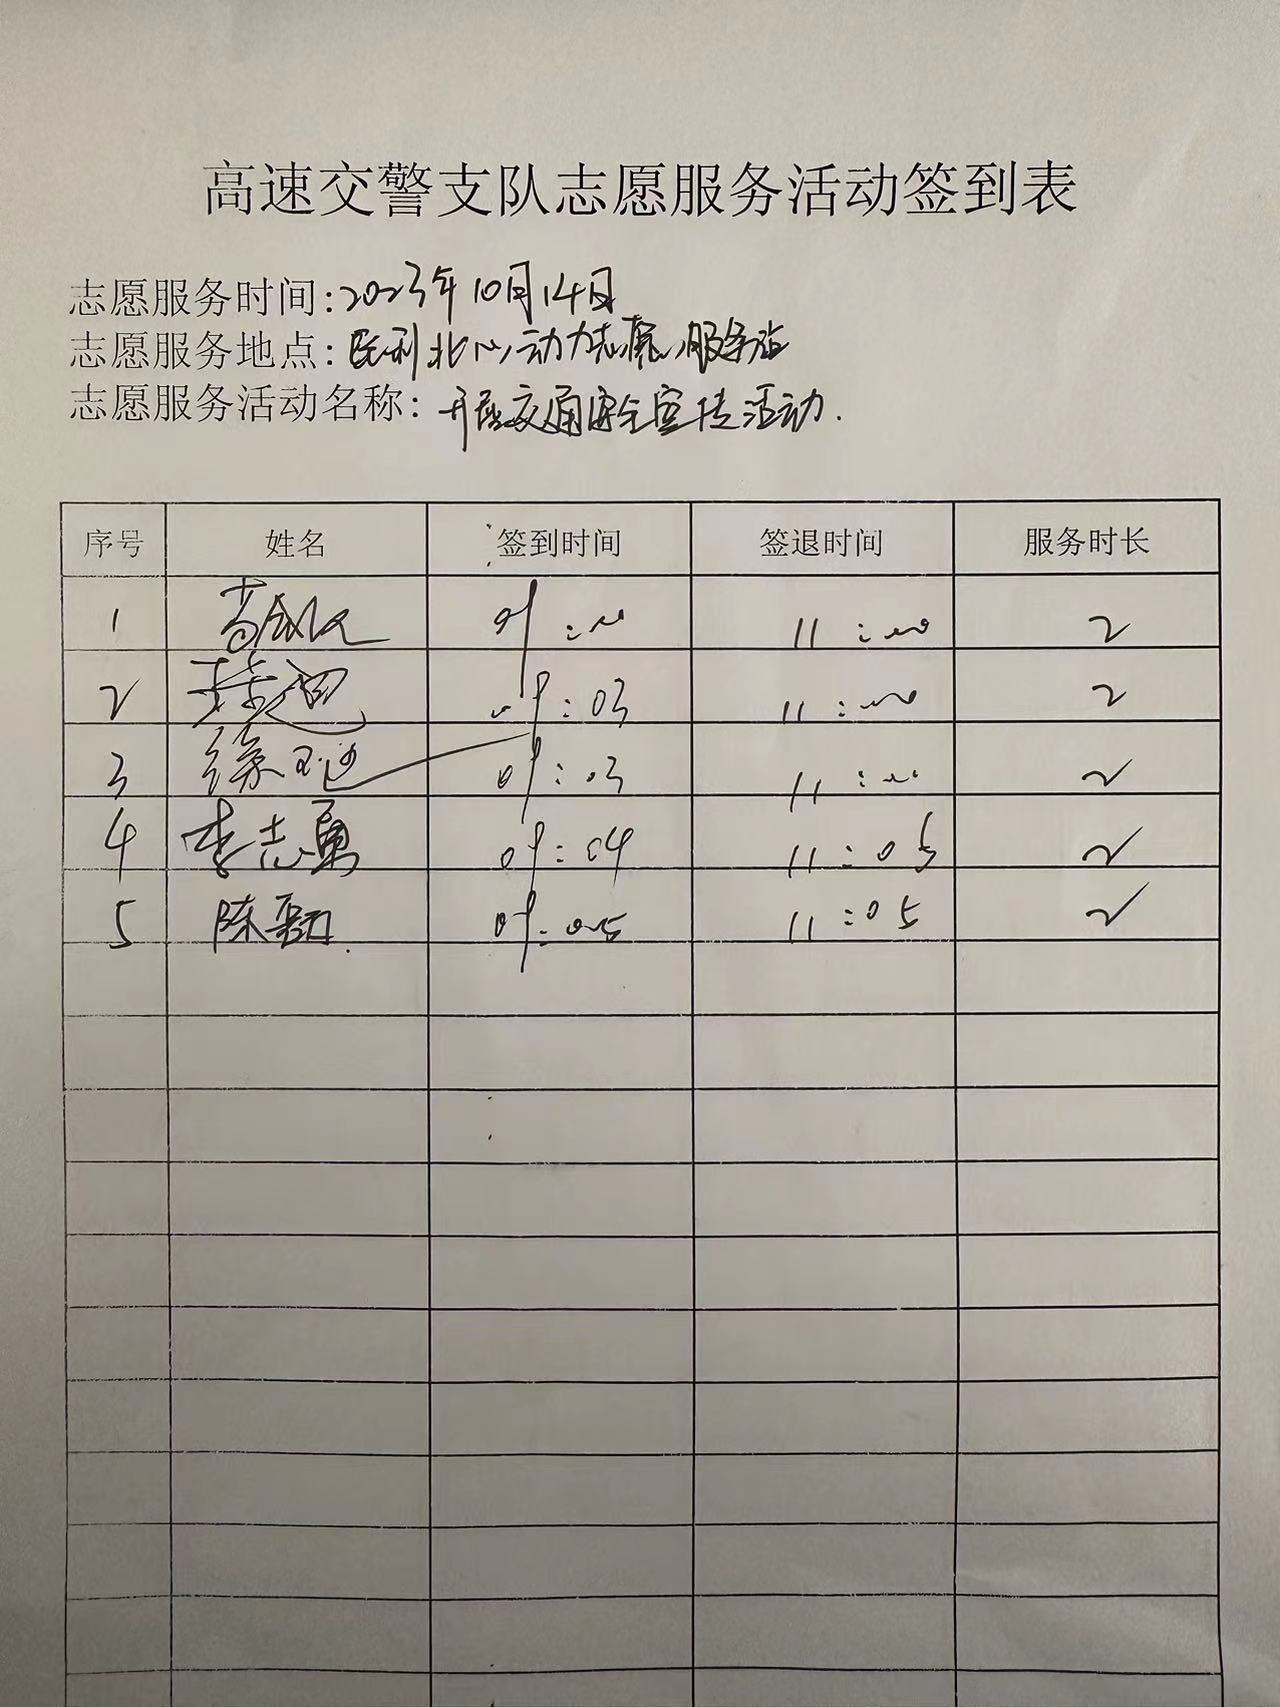 高速交警支队志愿服务活动签到表
志愿服务时间:2023年10月14日
志愿服务地点:民利北心动力志愿服务站
志愿服务活动名称:开展交通安全宣传活动.
序号 姓名 签到时间 签退时间 服务时长
1 09:00 11:00 2
2 09:03 11:00 2
3 徐 09:03 11:00 2
4 李志勇 09:04 11:05 2
5 陈 09:05 11:05 2